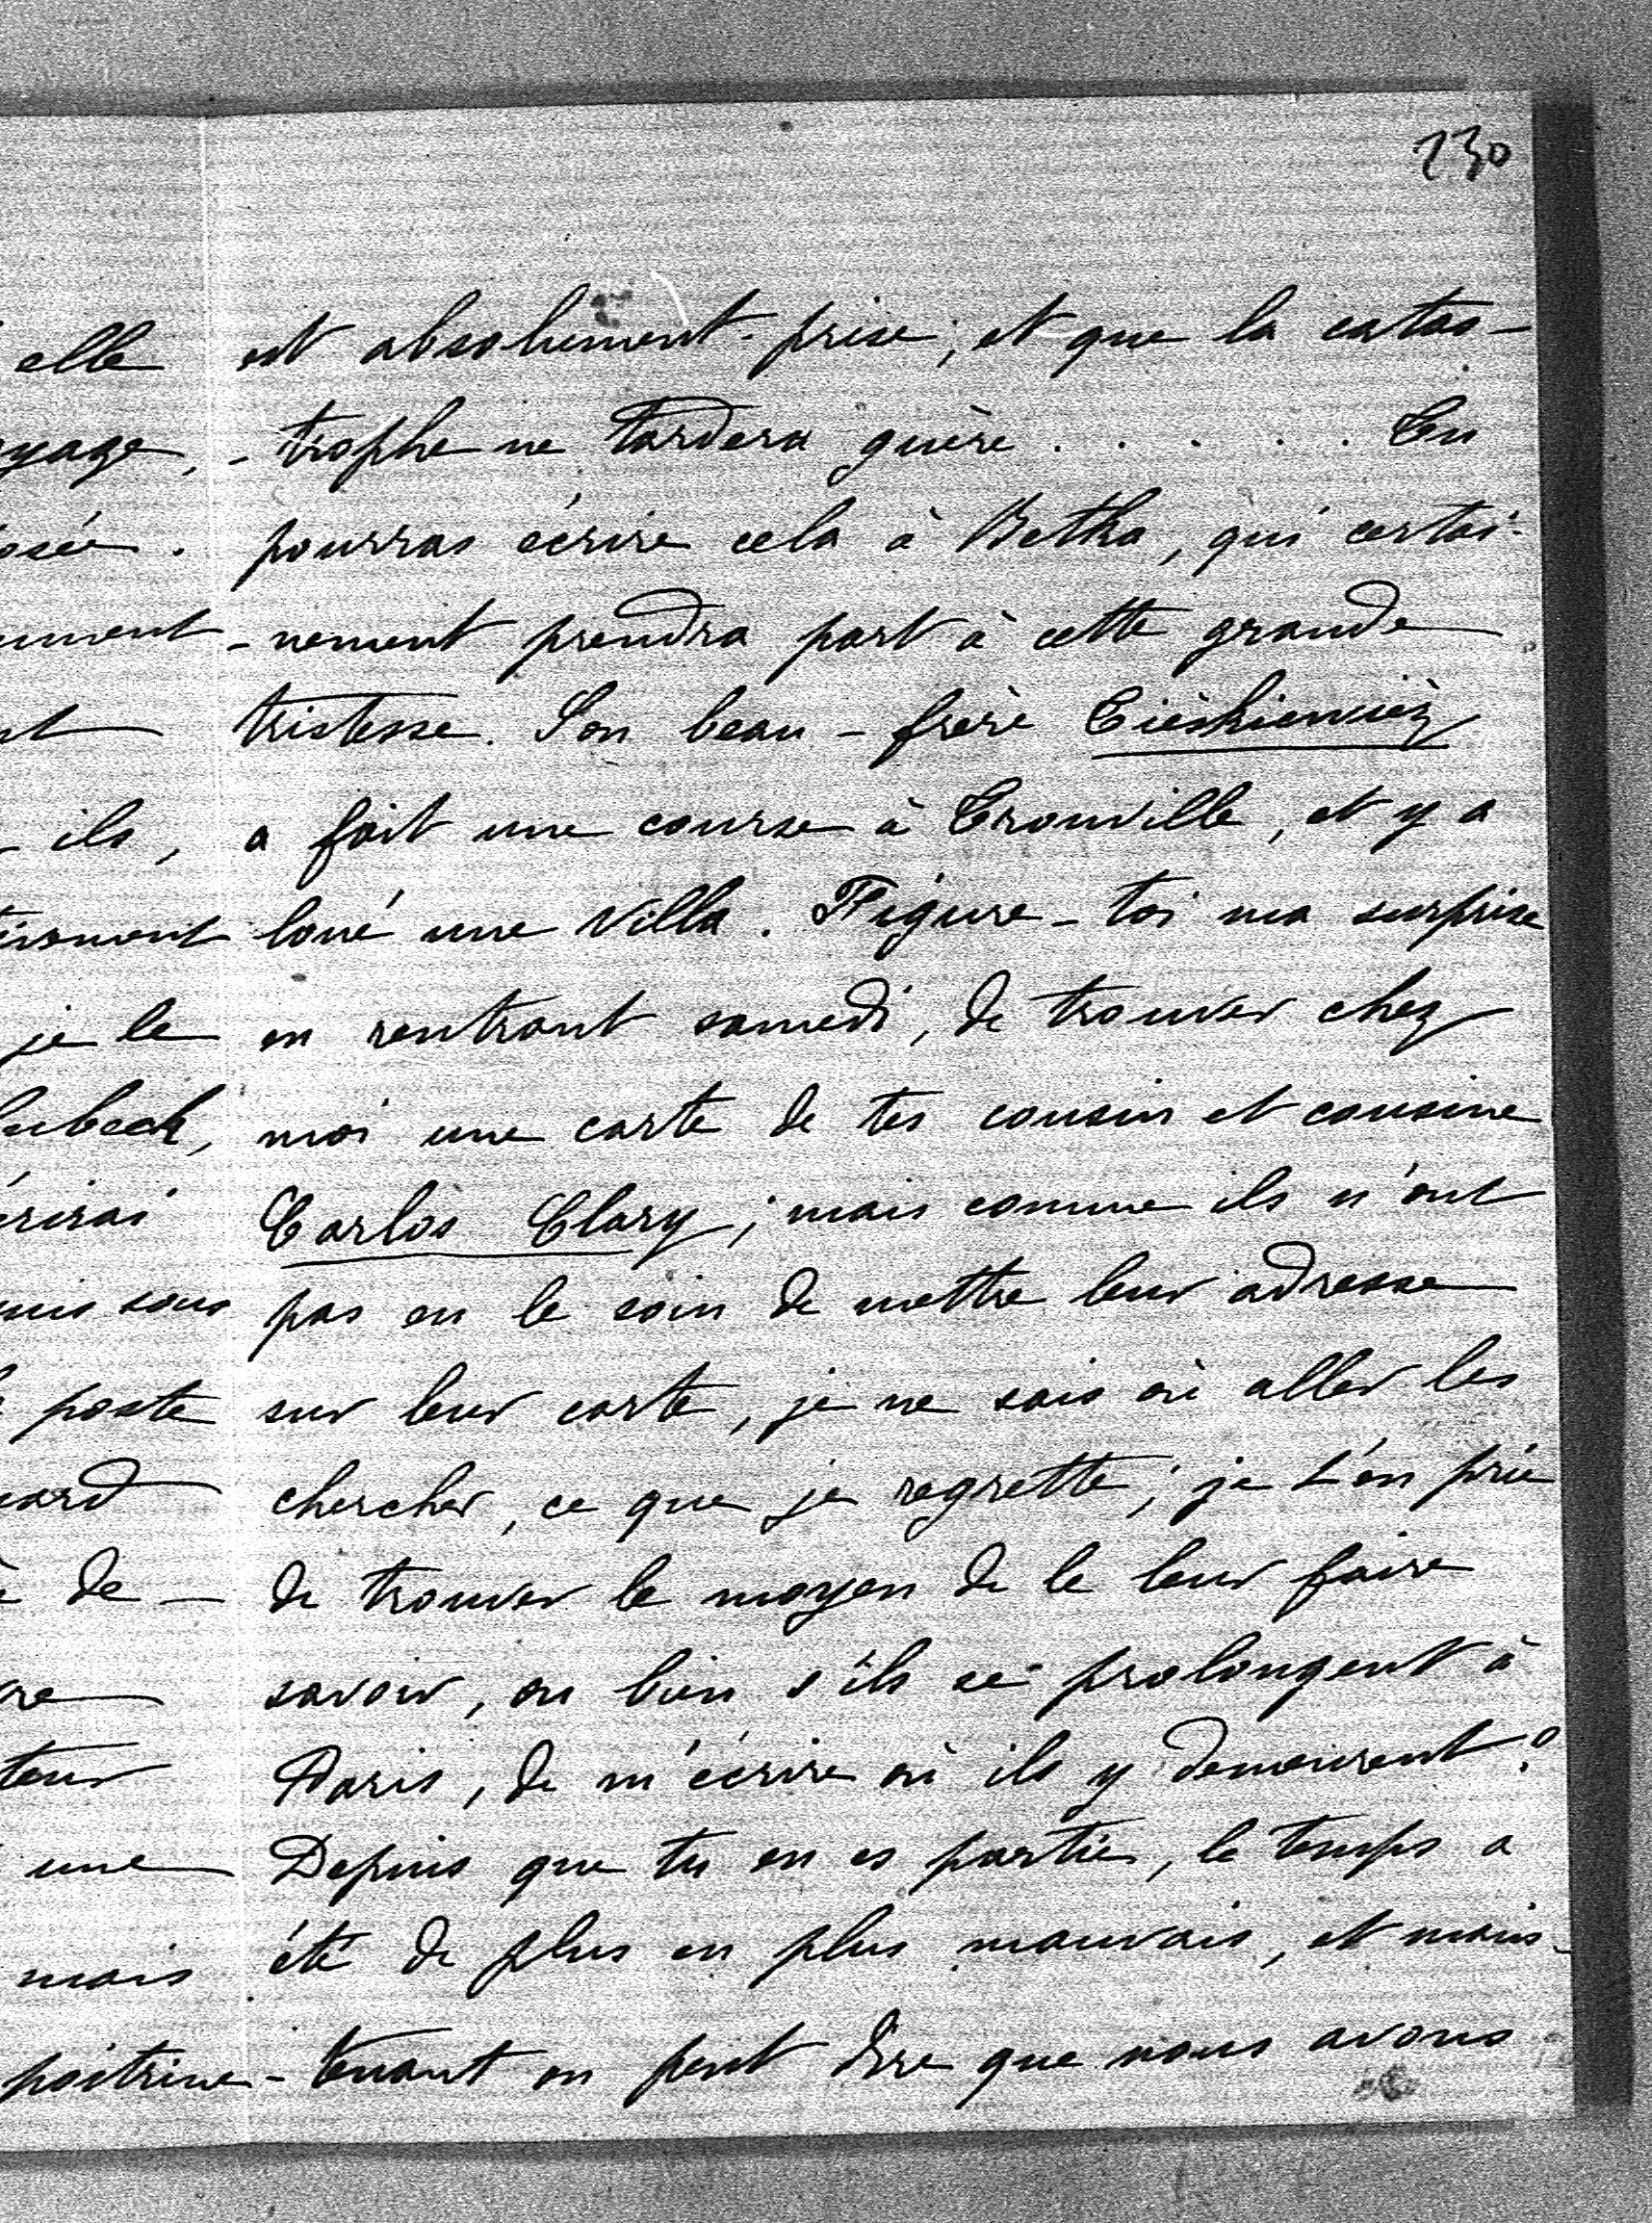 230
est absolument prise, et que la catas-
-trophe ne tardera guère . . . . . Tu
pourras écrire cela à Betka, qui certai-
-nement prendra part à cette grande
tristesse. Son beau-frère
a fait une course à Trouville, et y a
loué une Villa. Figure-toi ma surprise
en rentrant samedi, de trouver chez
moi une carte de tes cousin et cousine
Carlos Clary; mais comme ils n'ont
pas eu le soin de mettre leur adresse
sur leur carte, je ne sais où aller les
chercher, ce que je regrette; je t'en prie
de trouver le moyen de le leur faire
savoir, ou bien s'ils se prolongent à
Paris, de m'écrire où ils y demeurent?
Depuis que tu en es partie, le temps a
été de plus en plus mauvais, et main-
-tenant on peut dire que nous avons
elle
yage,
osée.
ument
nt
ils,
je le
ubeck,
rirai
uis sous
poste
de-
re
teur
une
mais
poitrine